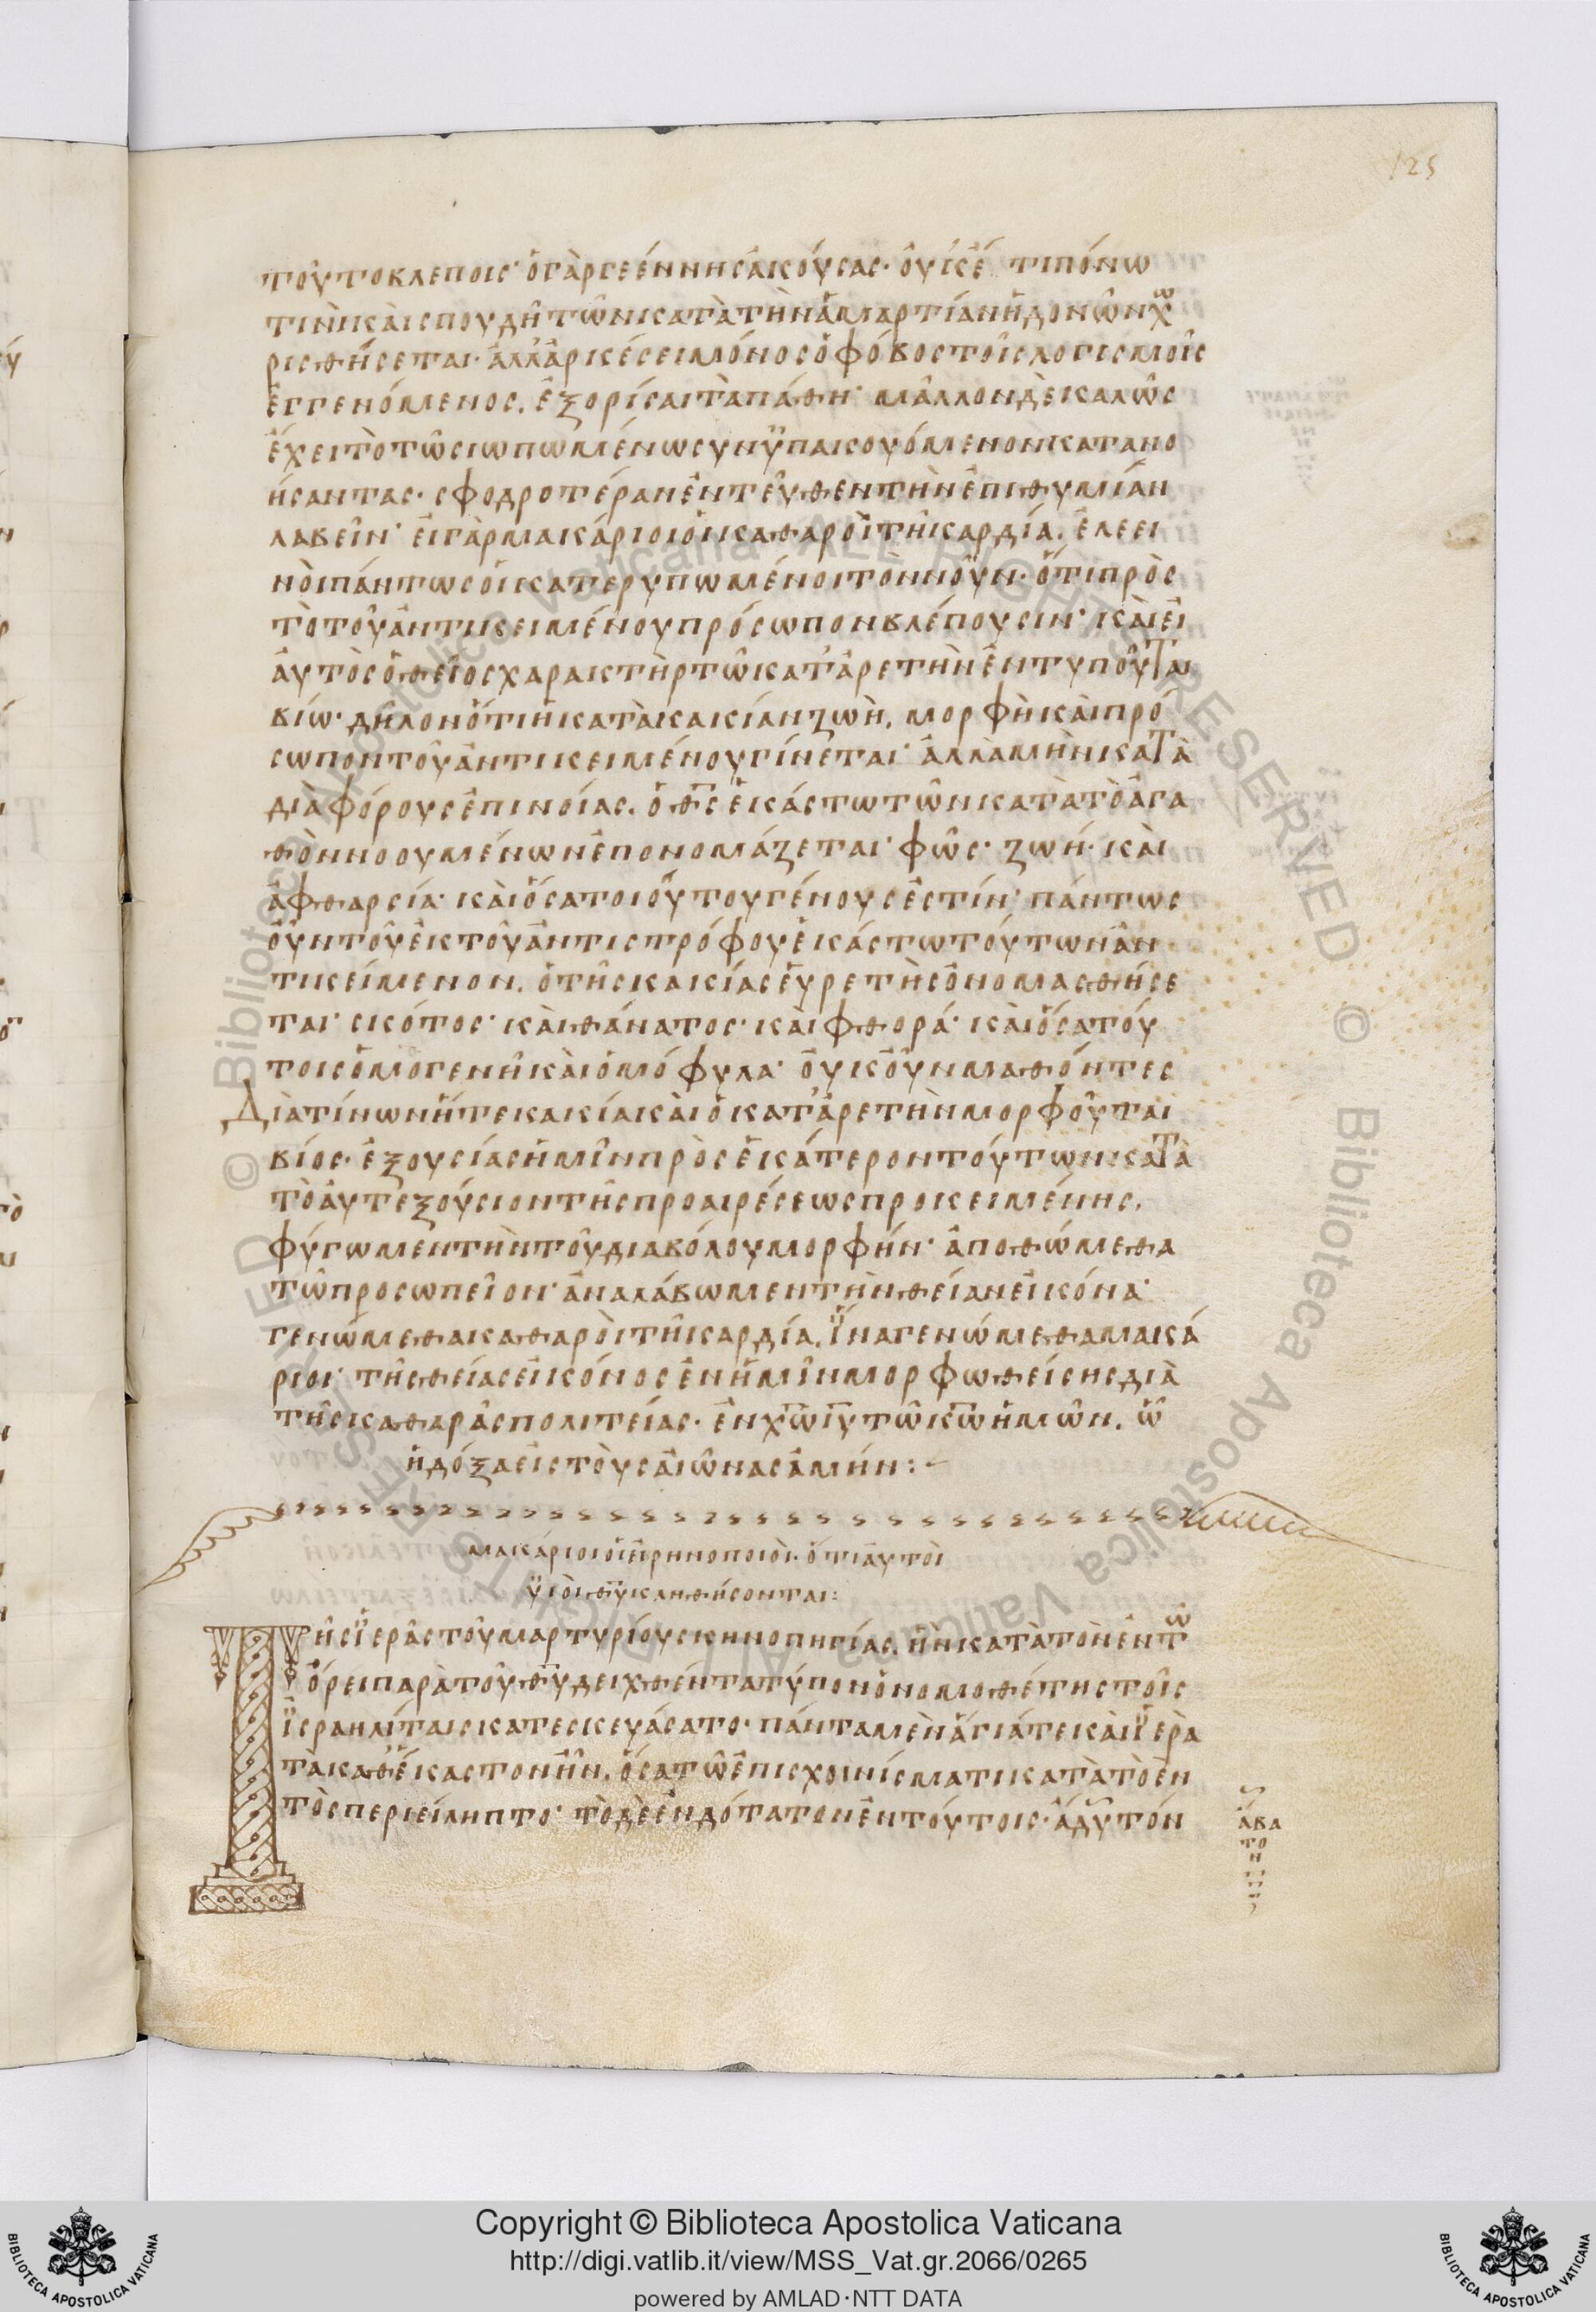 125
τοῦτο βλέποις· ὁ γὰρ γεέννης ἀκούσας· οὐκ ἔτι πόνω
τινὶ καὶ σπουδῆ τῶν κατὰ τὴν ἁμαρτίαν ἡδονῶν χω
ρισθήσεται· ἀλλ' ἀρκέσει μόνος ὁ φόβος τοῖς λογισμοῖς
ἐγγενόμενος, ἐξορίσαι τὰ πάθη· μᾶλλον δὲ καλῶς
ἔχει τὸ τῶ σιωπωμένω συνϋπακουόμενον κατανο
ήσαντας· σφοδροτέραν ἐντεῦθεν τὴν ἐπιθυμίαν
λαβεῖν· εἰ γὰρ μακάριοι οἱ καθαροὶ τῆ καρδία, ἐλεει
νοὶ πάντως οἱ κατερυπωμένοι τὸν νοῦν· ὅτι πρὸς
τὸ τοῦ ἀντικειμένου πρόσωπον βλέπουσιν· καὶ εἰ
αὐτὸς ὁ θεῖος χαρακτὴρ τῶ κατ' ἀρετὴν ἐντυποῦται
βίω· δῆλον ὅτι ἡ κατὰ κακίαν ζωὴ, μορφὴ καὶ πρό
σωπον τοῦ ἀντικειμένου γίνεται· ἀλλὰ μὴν κατὰ
διαφόρους ἐπινοίας, ὁ θς ἑκάστω τῶν κατὰ τὸ ἀγα
θὸν νοουμένων ἐπονομάζεται· φῶς· ζωή· καὶ
ἀφθαρσία· καὶ ὅσα τοιούτου γένους ἐστίν· πάντως
οὖν τοῦ ἐκ τοῦ ἀντιστρόφου ἑκάστω τούτων ἀν
τικείμενον, ὁ τῆς κακίας εὑρετὴς ὀνομασθήσε
ται· σκότος· καὶ θάνατος· καὶ φθορά· καὶ ὅσα τού
τοις ὁμογενῆ καὶ ὁμόφυλα· οὐκοῦν μαθόντες
Διὰ τίνων ἥ τε κακία καὶ ὁ κατ' ἀρετὴν μορφοῦται
βίος· ἐξουσίας ἡμῖν πρὸς ἑκάτερον τούτων κατὰ
τὸ αὐτεξούσιον τῆς προαιρέσεως προκειμένης,
φύγωμεν τὴν τοῦ διαβόλου μορφήν· ἀποθώμεθα
τῶ προσωπεῖον· ἀναλάβωμεν τὴν θείαν εἰκόνα·
γενώμεθα καθαροὶ τῆ καρδία, ἵνα γενώμεθα μακά
ριοι· τῆς θείας εἰκόνος ἐν ἡμῖν μορφωθείσης διὰ
τῆς καθαρᾶς πολιτείας· ἐν χω ιυ τῶ κω ἡμῶν, ὧ
ἡ δόξα εἰς τοὺς αἰῶνας ἀμήν:-
μακάριοι οἱ εἰρηνοποιοὶ· ὅτι αὐτοὶ
υἱοὶ θυ κληθήσονται:
Τῆς ἱερᾶς τοῦ μαρτυρίου σκηνοπηγίας, ἣν κατὰ τὸν ἐν τῶ
ὄρει παρὰ τοῦ θυ δειχθέντα τύπον ὁ νομοθέτης τοῖς
ἰσραηλίταις κατεσκευάσατο· πάντα μὲν ἅγιά τε καὶ ἱερὰ
τὰ καθ' ἕκαστον ἦν, ὅσα τῶ ἐπισχοινίσματι κατὰ τὸ ἐν
τὸς περιείληπτο· τὸ δὲ ἐνδότατον ἐν τούτοις· ἄδυτόν
ἄβα
το
ν
Copyright © Biblioteca Apostolica Vaticana
http://digi.vatlib.it/view/MSS_Vat.gr.2066/0265
powered by AMLAD·NTT DATA
BIBLIOTECA APOSTOLICA VATICANA
BIBLIOTECA APOSTOLICA VATICANA